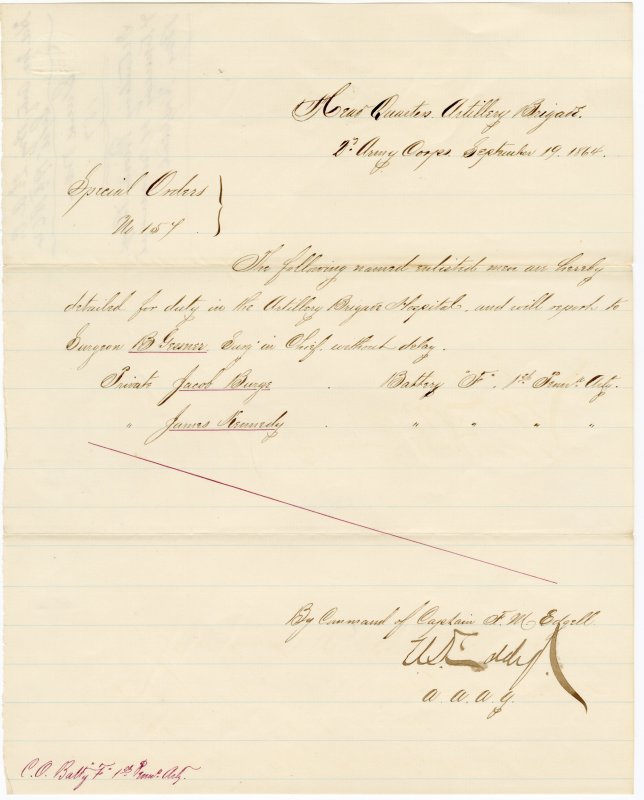 Head Quarters Artillery Brigade.
2d Army Corps September 19, 1864.
Special Orders
No 157.
The following named enlisted men are hereby
detailed for duty in the Artillery Brigade Hospital, and will report to
Surgeon B Gesner Surg in Chief, without delay.
Private Jacob Burge . Battery "F", 1st Penna Arty.
" James Kennedy . " " " "
By Command of Captain F. M Edgell
U.S. Eddy
A. A. A. G.
C. O. Batty "F" 1st Penna Arty.